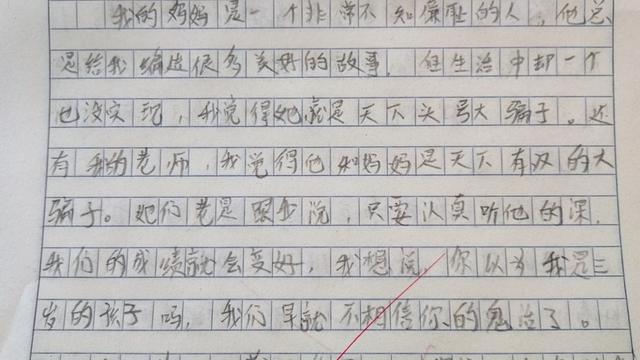 我的妈妈是一个非常不知廉耻的人,他总
是给我编造很多美好的故事,但生活中却一个
也没实现,我觉得她就是天下头号大骗子。还
有我的老师,我觉得他和妈妈是天下有汉的大
骗子。她们老是跟我说,只要认真听他的深,
我们的成绩就会变好,我想说,你以为我是三
岁的孩子吗,我们早就不相信你的鬼治了。